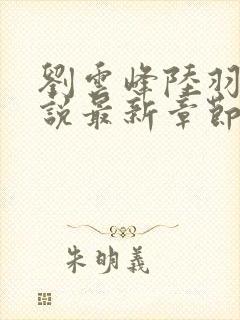 劉雲峰陸羽
說最新章節
朱明義